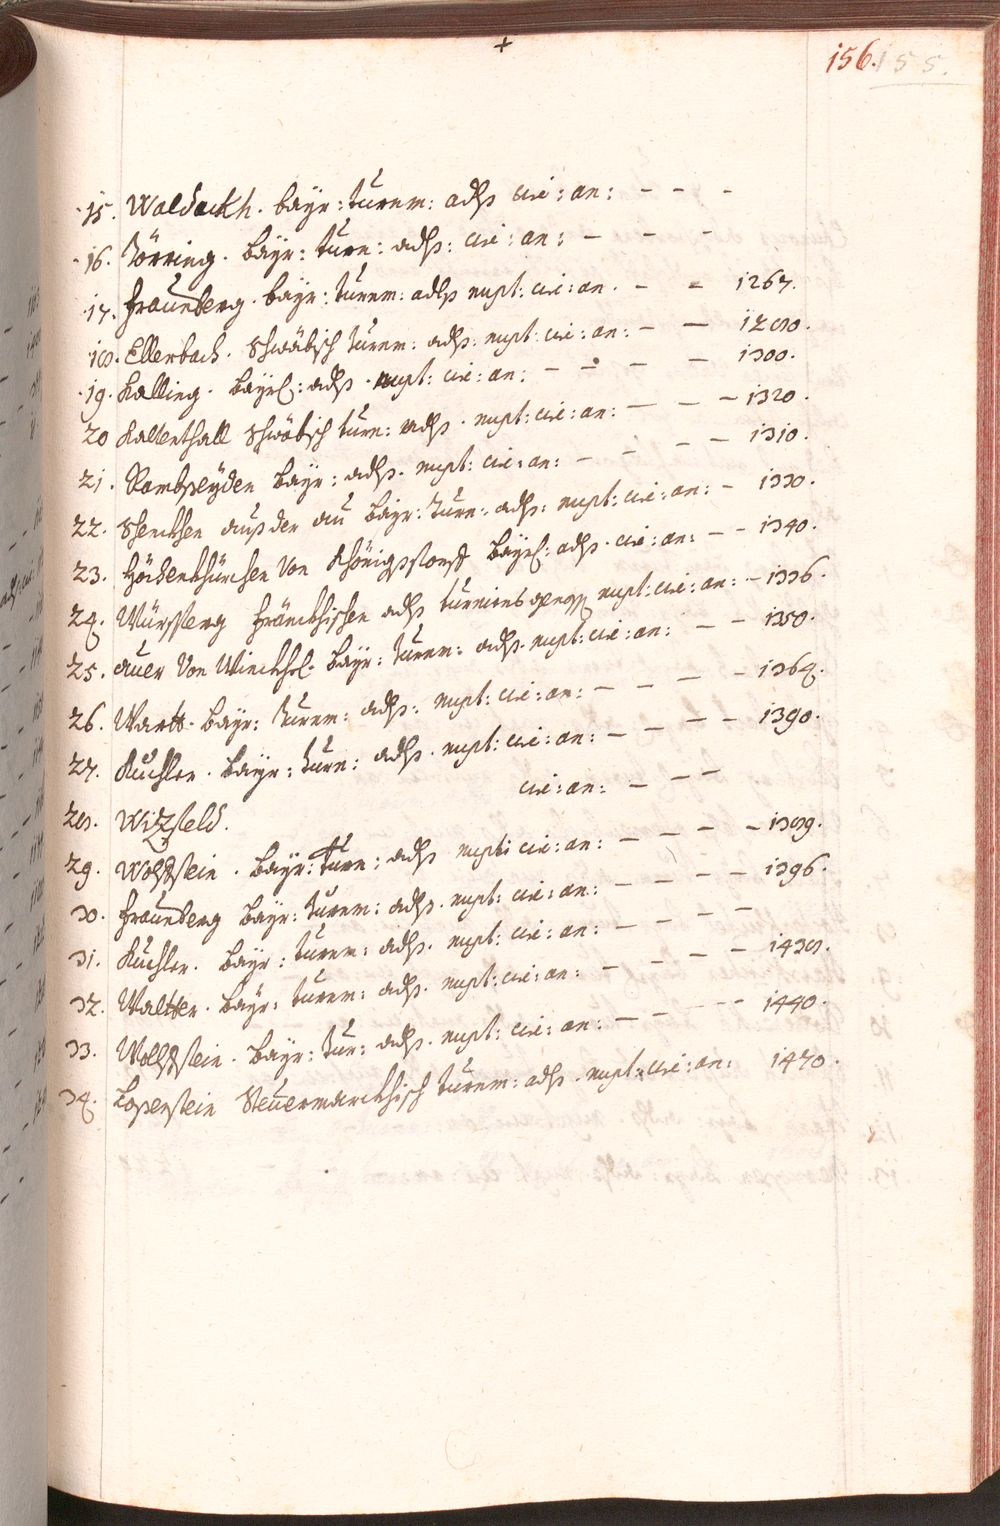 +
156. 155.
15. Waldeckh. bayr: turnm: adls cir: an: – – –
16. Törring. bayr: turn: adls: cir: an: – – –
17. Fraunberg. bayr: turnm: adls nupt: cir: an. – – 1267.
18. Ellerbach. Schwäbisch turnm: adls. nupt: cir: an: – – 1280.
19. Kalling. bayrl: adls. nupt: cir: an: – – – – 1300.
20 Kaltenthall Schwäbisch turn: adls. nupt: cir: an: – – – 1320.
21. Rambseyden bayr: adls. nupt: cir: an: – – – – 1310.
22. Schenkhen auß der au bayr: turn: adls: nupt: cir: an: – 1330.
23. Höchenkhürchen von Khönigsstorff bayrl: adls. cir: an: – – 1340.
24. Würsperg Fränckhischen adls turniersgenoß nupt: cir: an: – 1336.
25. Auer von Winckhl. bayr: turnm: adls. nupt: cir: an: – – 1350.
26. Wartt. bayr: turnm: adls: nupt: cir: an: – – – – 1364.
27. Kuchler. bayr: turn: adls. nupt: cir: an: – – – – 1390.
28. Witzfeld. cir: an: – – –
29. Wolffstein. bayr: turn: adls nupti cir: an: – – – – 1389.
30. Fraunberg bayr: turnm: adls. nupt: cir: an: – – – – 1396.
31. Kuchler. bayr: turnm: adls. nupt: cir: an: – – – –
32. Waltter. bayr: turnm: adls. nupt: cir: an: – – – – 1438.
33. Wolffstein. bayr: tur: adls. nupt: cir: an: – – – – – 1440.
34. Loserstein Steuermarckhisch turnm: adls. nupt: cir: an: 1470.